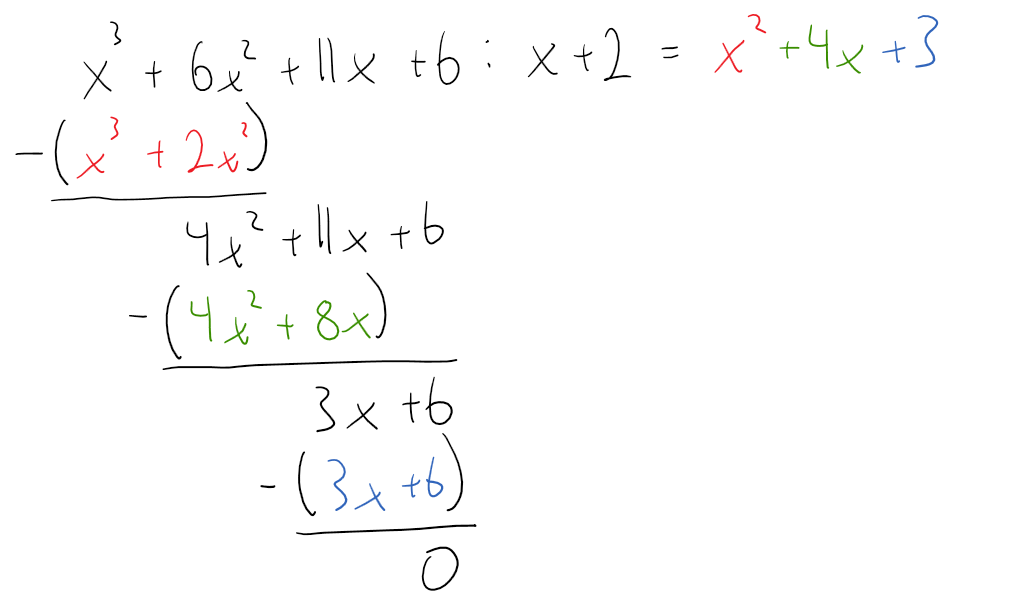 x³ + 6x² + 11x + 6 : x + 2 = x² + 4x + 3
- (x³ + 2x²)
4x² + 11x + 6
- (4x² + 8x)
3x + 6
- (3x + 6)
0